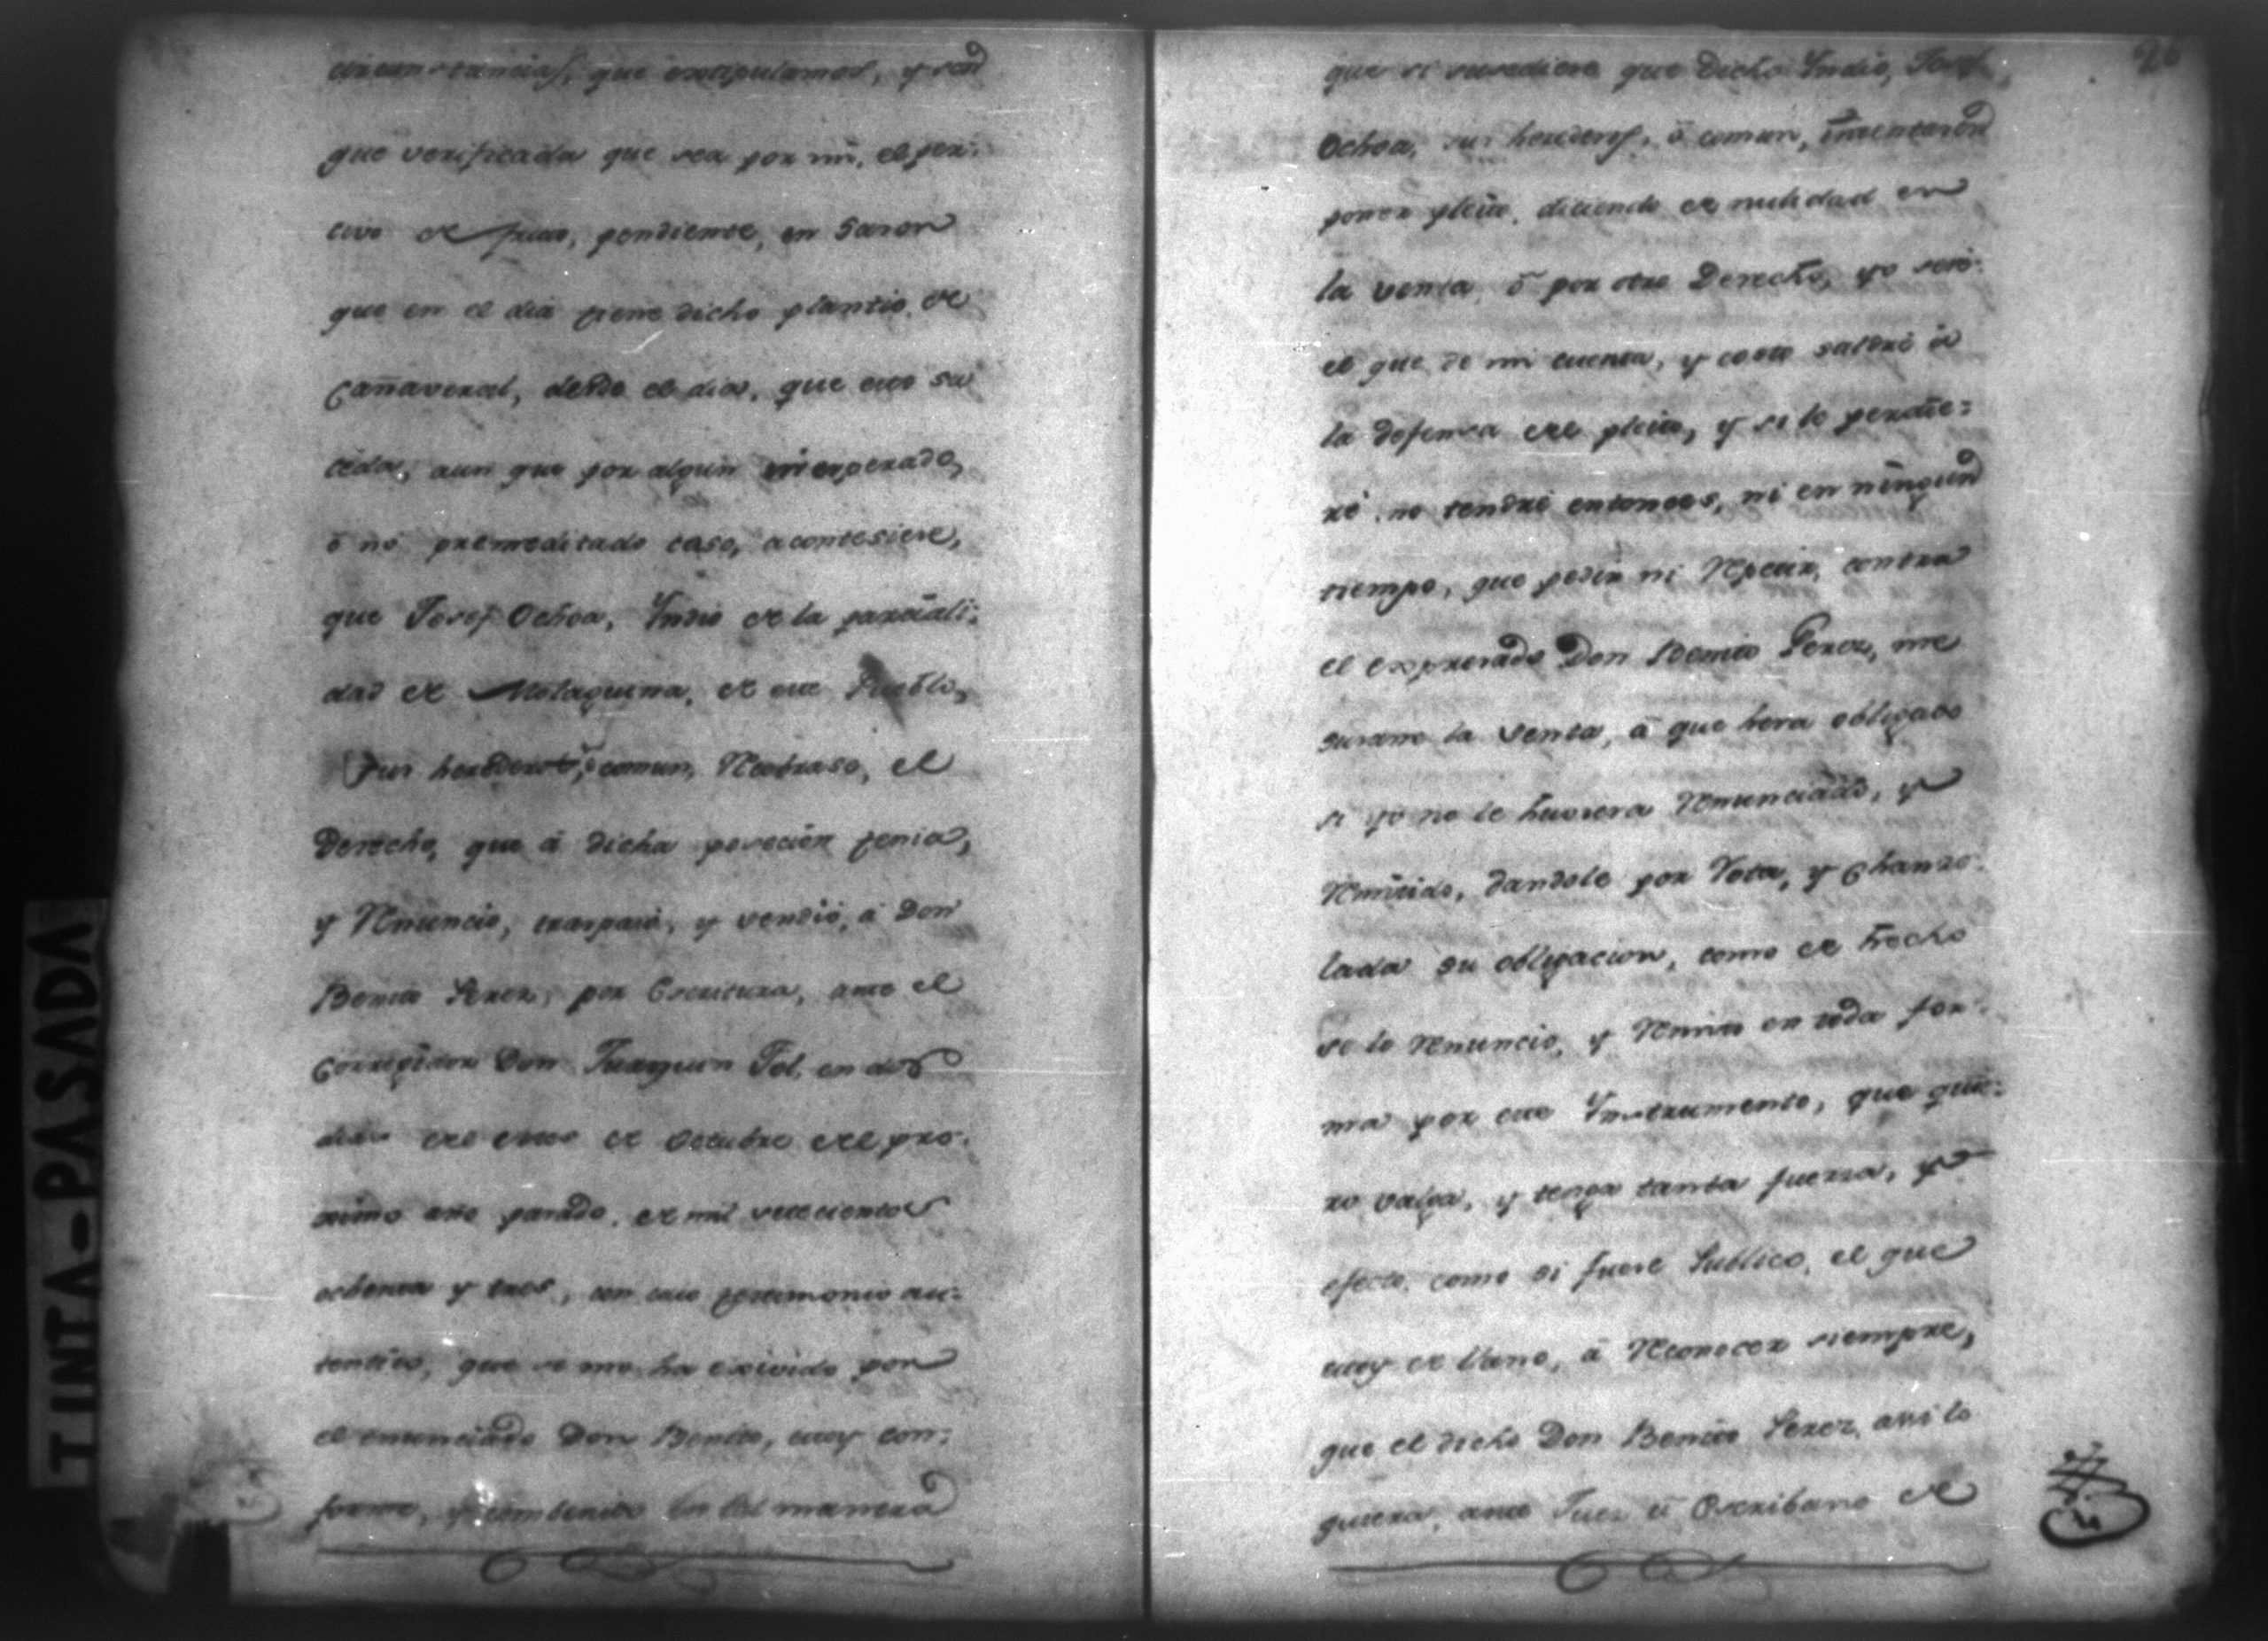 circunstancias, que extipulamos, y son
que verificada que sea por mi, el per:
civo de fruto, pendiente, en Sason
que en el dia tiene dicho plantio de
Cañaveral, desde el dia, que este su
ceda, aun que por algun inesperado,
ó no premeditado caso, acontesiere,
que Josef Ochoa, Yndio de la parciali:
dad de Motaquima, de este Pueblo,
sus herederos, ó comun, Retraso, el
Derecho, que á dicha posecion tenia,
y Renuncio, traspasó, y vendió, á Don
Benito Perez, por Escritura, ante el
Corregidor Don Juaquin Fol, en dos
dias del mes de Octubre del pro:
ximo año pasado, de mil setecientos
ochenta y tres, con cuio testimonio au:
tentico, que se me ha exivido por
el enunciado Don Benito, estoy con:
forme, y combenido en tal manera
26
que si susediere que Dicho Yndio, Josef
Ochoa, sus herederos, ó comun, intentaron
poner pleito, diciendo de nulidad en
la venta, ó por otro Derecho, yo seré
el que de mi cuenta, y costo saldré á
la defensa del pleito, y si lo perdie:
ré, no tendré entonces, ni en ningun
tiempo, que pedir ni Repetir, contra
el expresado Don Benito Perez, me
surame la venta, á que hera obligado
si yo no le huviera Renunciado, y
Remitido, dandole por Rota, y Chanse:
lada su obligacion, como de hecho
se lo Renuncio, y Remito en toda for:
ma por este Ynstrumento, que quie:
ro valga, y tenga tanta fuerza, y
efecto, como si fuere Publico, el que
estoy de llano, á Reconocer siempre,
que el dicho Don Benito Perez, assi lo
quiera, ante Juez ú Escribano de
TINTA-PASADA